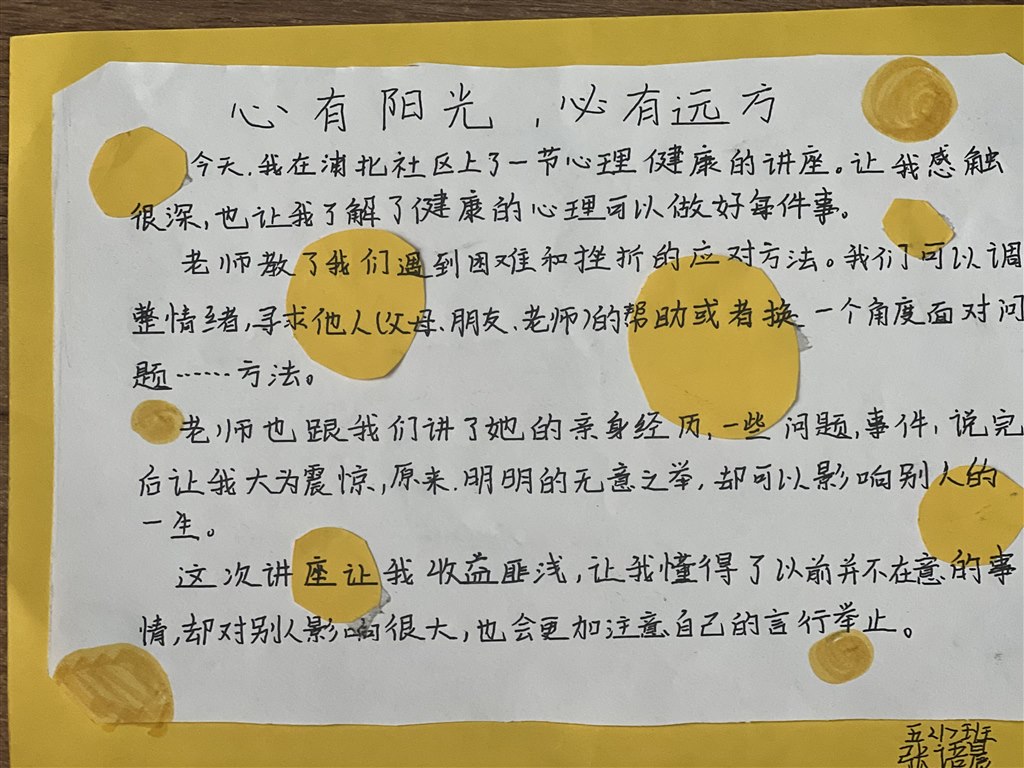 心有阳光，必有远方
今天，我在浦北社区上了一节心理健康的讲座。让我感触
很深，也让我了解了健康的心理可以做好每件事。
老师教了我们遇到困难和挫折的应对方法。我们可以调
整情绪，寻求他人(父母、朋友、老师)的帮助或者换一个角度面对问
题……方法。
老师也跟我们讲了她的亲身经历，一些问题，事件，说完
后让我大为震惊，原来，明明的无意之举，却可以影响别人的
一生。
这次讲座让我收益匪浅，让我懂得了以前并不在意的事
情，却对别人影响很大，也会更加注意自己的言行举止。
五<2>班
张语晨